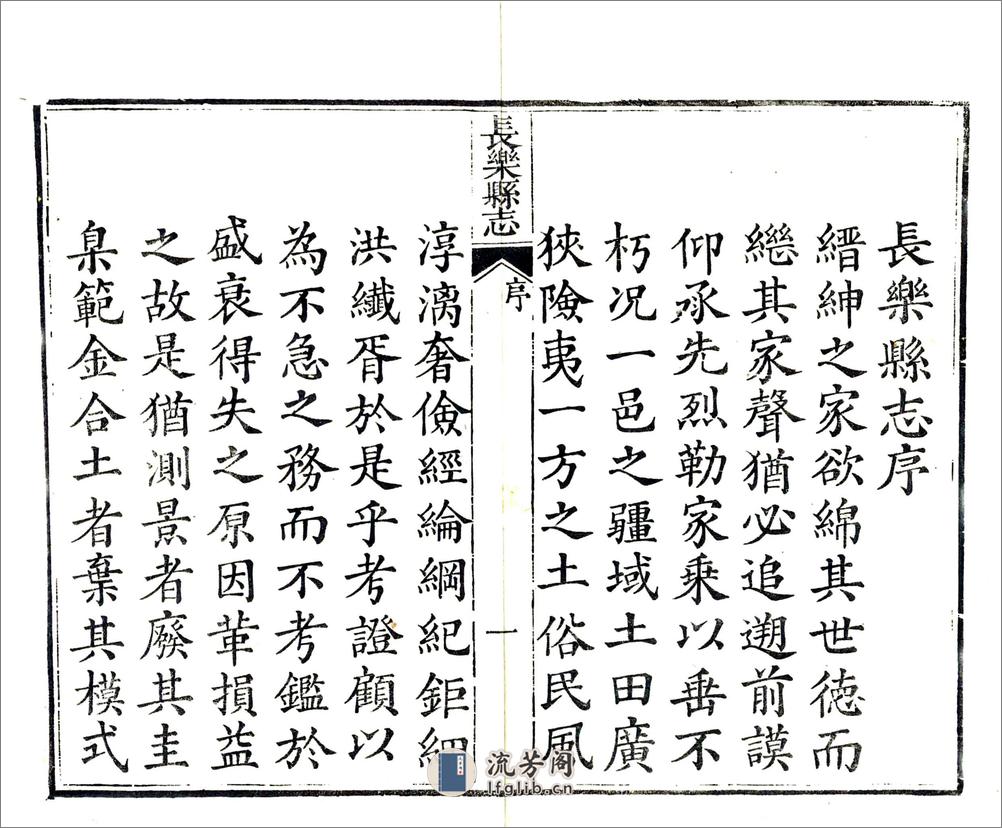 長樂縣志序
縉紳之家欲綿其世德而
繼其家聲猶必追遡前謨
仰承先烈勒家乘以垂不
朽况一邑之疆域土田廣
狹險夷一方之土俗民風
長樂縣志
序
一
淳漓奢儉經綸綱紀鉅細
洪纖胥於是乎考證顧以
為不急之務而不考鑑於
盛衰得失之原因革損益
之故是猶測景者廢其圭
臬範金合土者棄其模式
流芳阁
lfglib.cn